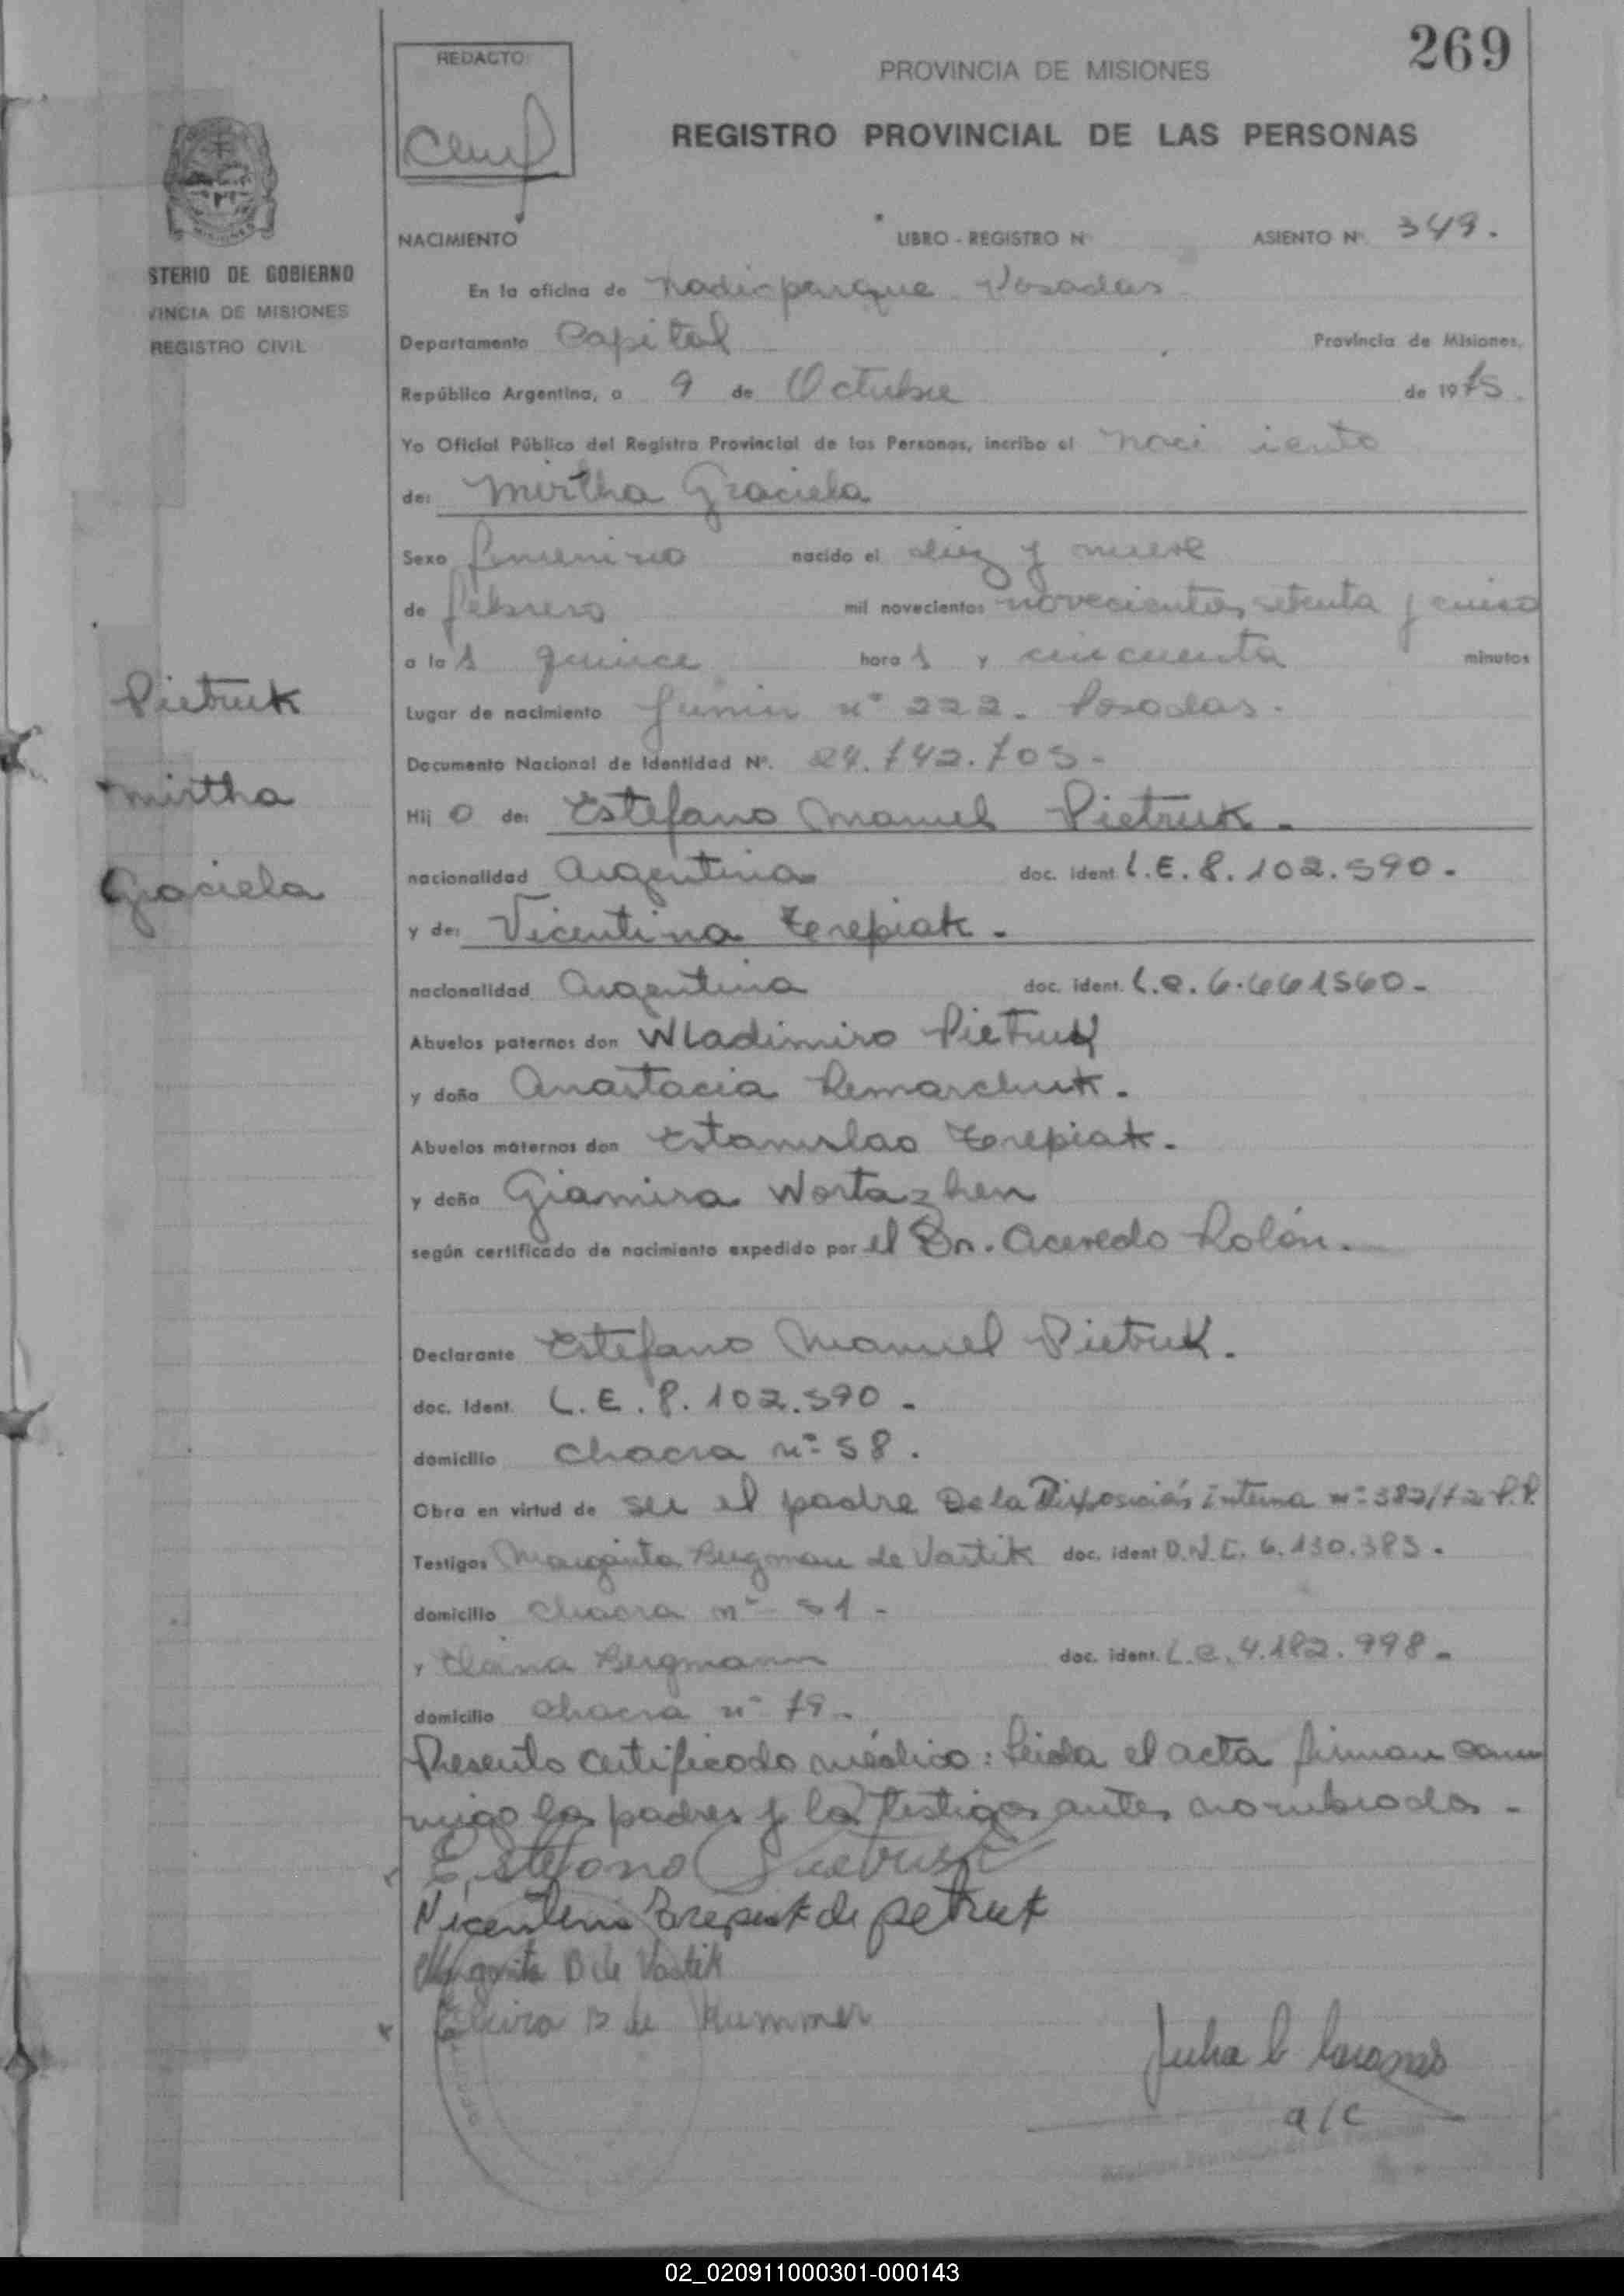 269
REDACTO
PROVINCIA DE MISIONES
REGISTRO PROVINCIAL DE LAS PERSONAS
NACIMIENTO LIBRO - REGISTRO N ASIENTO Nº 349.
STERIO DE GOBIERNO
VINCIA DE MISIONES
REGISTRO CIVIL
En la oficina de Posadas
Departamento Capital Provincia de Misiones,
República Argentina, a 9 de Octubre de 1975.
Yo Oficial Público del Registro Provincial de las Personas, incribo el naci iento
de: Mirtha Graciela
Sexo femenino nacido el diez y nueve
de febrero mil novecientos novecientos setenta y cinco
a las quince horas y cincuenta minutos
Lugar de nacimiento Junin nº 222. Posadas.
Documento Nacional de Identidad Nº. 24.742.705-
Pietruk
Mirtha
Graciela
Hij o de: Estefano Manuel Pietruk.
nacionalidad Argentina doc. ident. L.E. 8.102.590.
y de: Vicentina Zerepiak.
nacionalidad Argentina doc. ident. L.C. 6.661560-
Abuelos paternos don Wladimiro Pietruk
y doña Anastacia Remarchuk.
Abuelos maternos don Estanislao Zerepiak.
y doña Giamira Wortazhen
según certificado de nacimiento expedido por el Dr. Acevedo Rolón.
Declarante Estefano Manuel Pietruk.
doc. ident. L.E. 8.102.590-
domicilio Chacra nº 58.
Obra en virtud de ser el padre De la Disposición interna nº 382/72 P.P.
Testigos Margarita Bergman de Vastik doc. ident D.N.I. 6.130.383.
domicilio Chacra nº 51-
y Bergmann doc. ident. L.C. 4.182.998-
domicilio Chacra nº 79-
Presento certificado médico: Leida el acta firman con
migo los padres y los testigos antes nombrados-
Estefano Pietruk
Vicentina Zerepiak de petruk
Margarita B de Vastik
Elvira B de Kummer
Julia
a/c
02_020911000301-000143